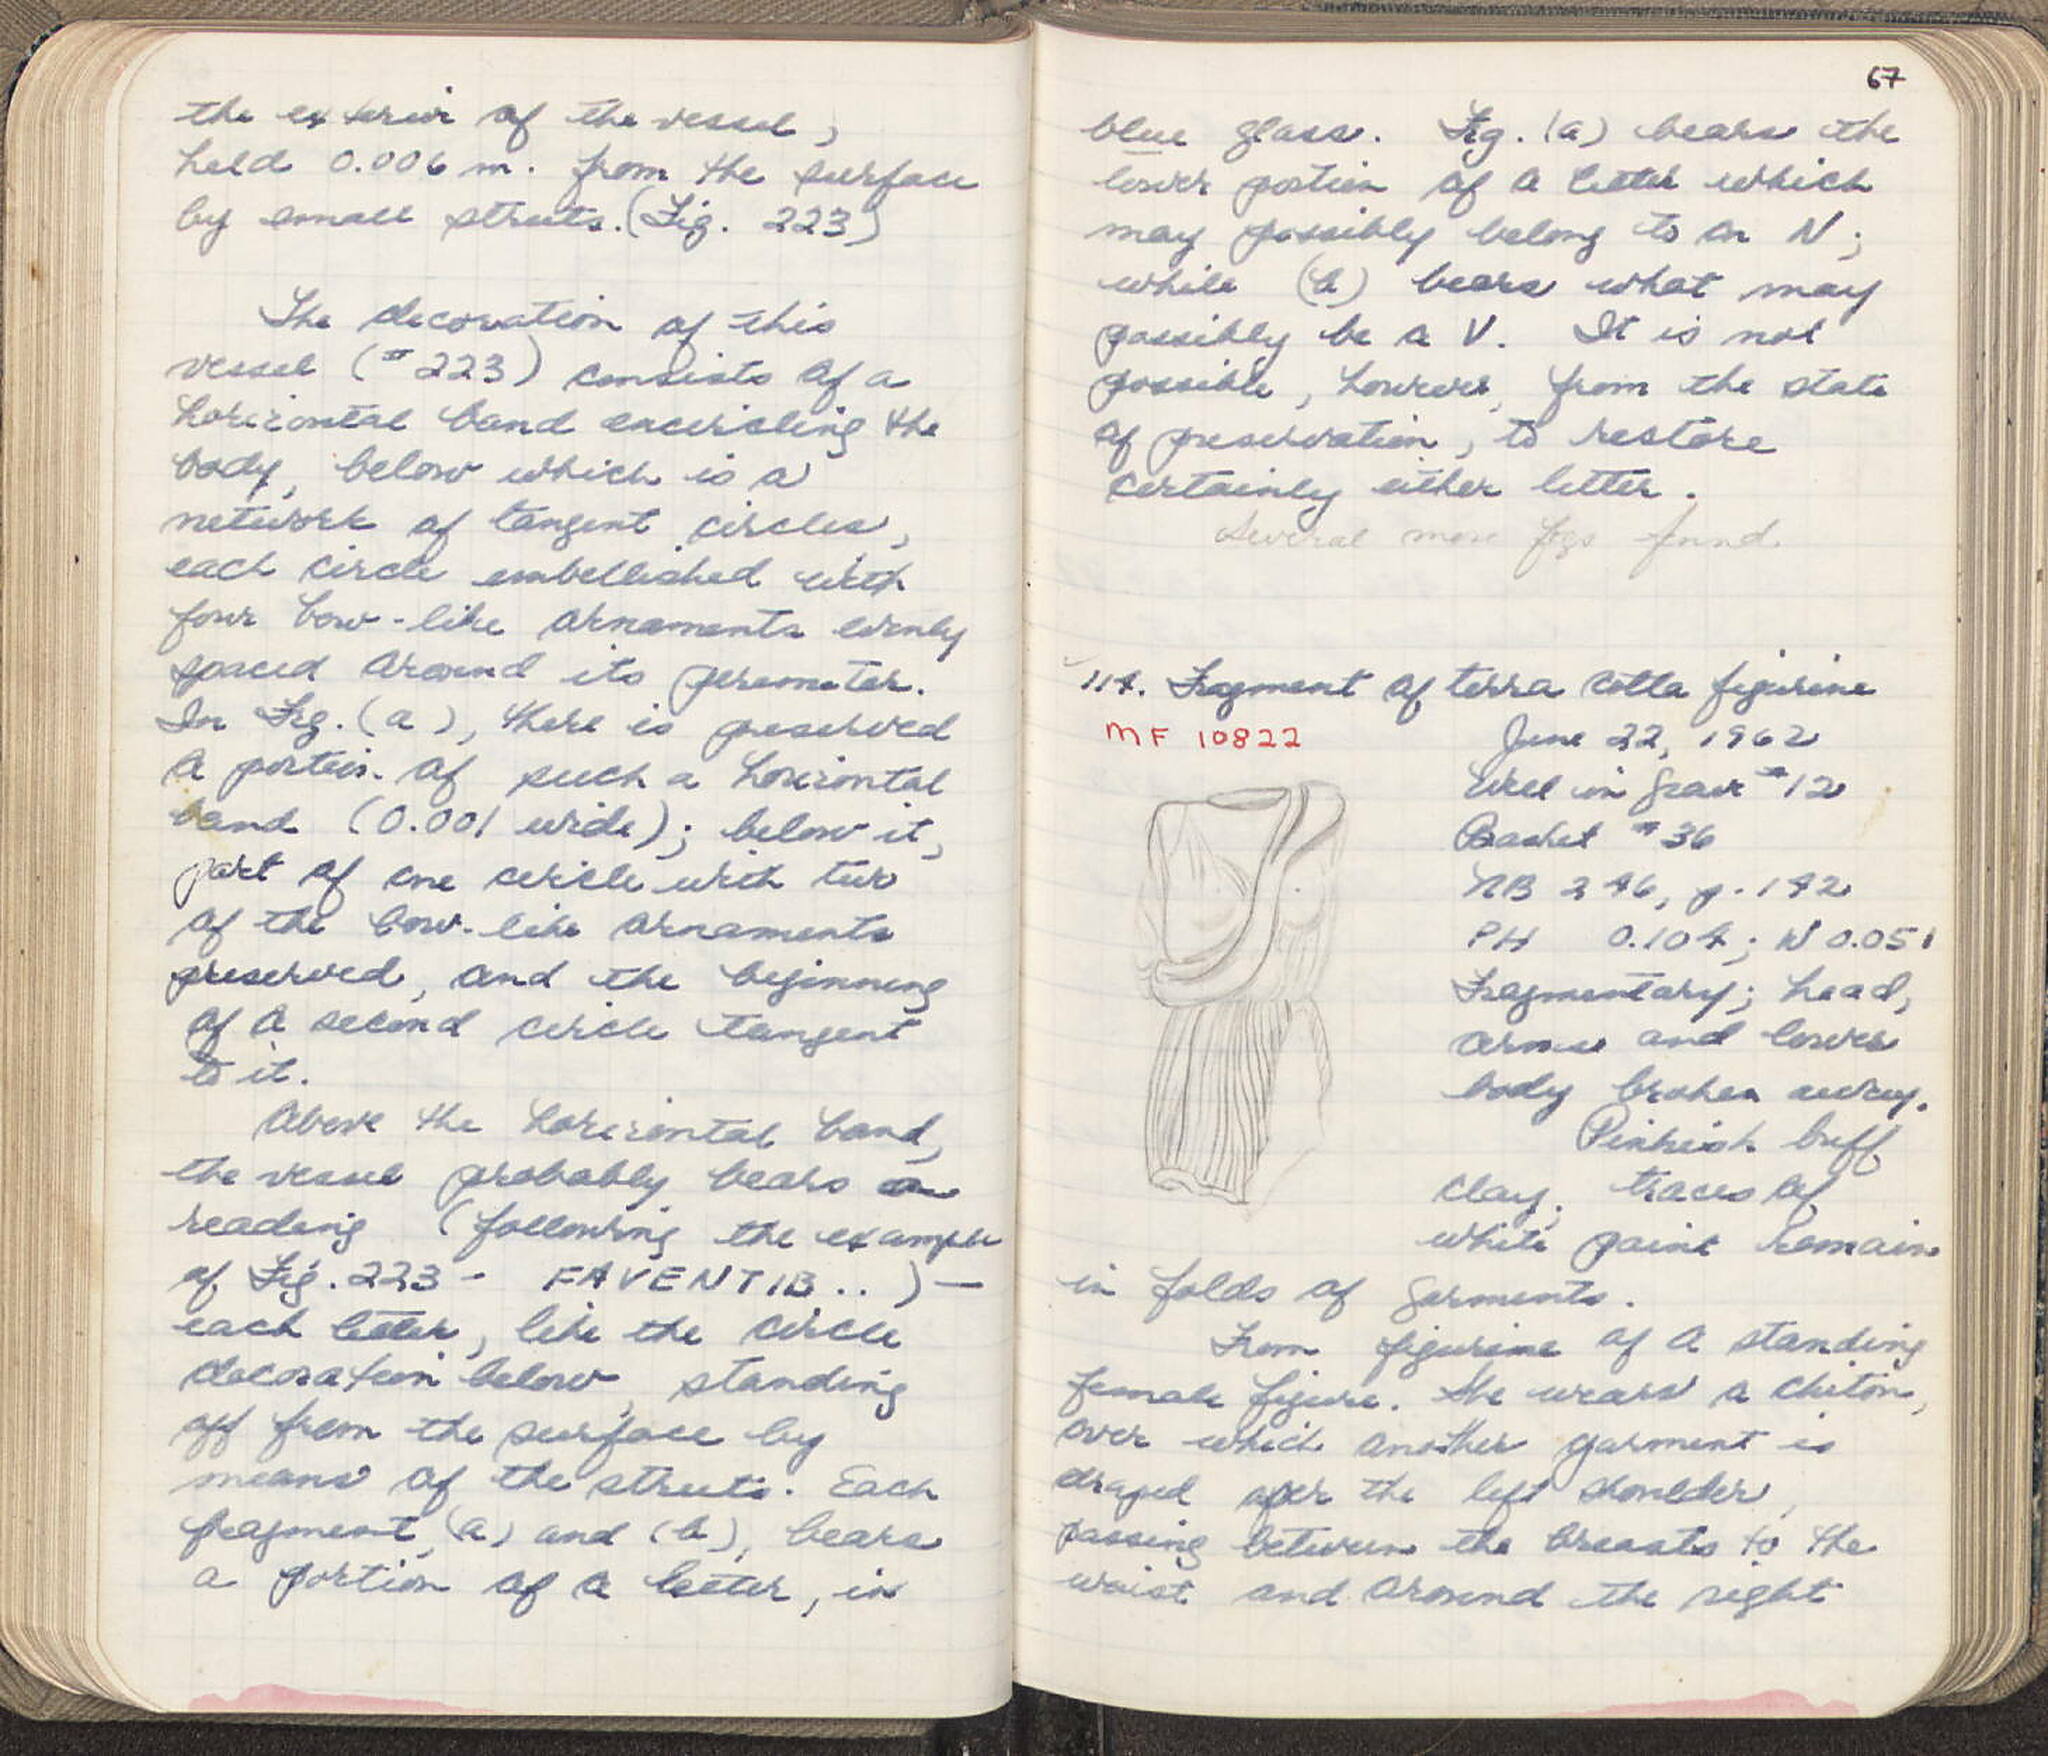 the exterior of the vessel,
held 0.006 m. from the surface
by small struts. (Fig. 223)
The decoration of this
vessel (#223) consists of a
horizontal band encircling the
body, below which is a
network of tangent circles,
each circle embellished with
four bow-like ornaments evenly
spaced around its perimeter.
In Frg. (a), there is preserved
a portion of such a horizontal
band (0.001 wide); below it,
part of one circle with two
of the bow-like ornaments
preserved, and the beginning
of a second circle tangent
to it.
Above the horizontal band,
the vessel probably bears a
reading (following the example
of Fig. 223 - FAVENTIB..) —
each letter, like the circle
decoration below, standing
off from the surface by
means of the struts. Each
fragment, (a) and (b), bears
a portion of a letter, in
67
blue glass. Frg. (a) bears the
lower portion of a letter which
may possibly belong to an N;
while (b) bears what may
possibly be a V. It is not
possible, however, from the state
of preservation, to restore
certainly either letter.
Several more frgs found.
114. Fragment of terra cotta figurine
MF 10822
June 22, 1962
Well in Grave #12
Basket #36
NB 246, p. 142
PH 0.104; W 0.051
Fragmentary; head,
arms and lower
body broken away.
Pinkish buff
clay; traces of
white paint remain
in folds of garments.
From figurine of a standing
female figure. She wears a chiton,
over which another garment is
draped over the left shoulder,
passing between the breasts to the
waist and around the right